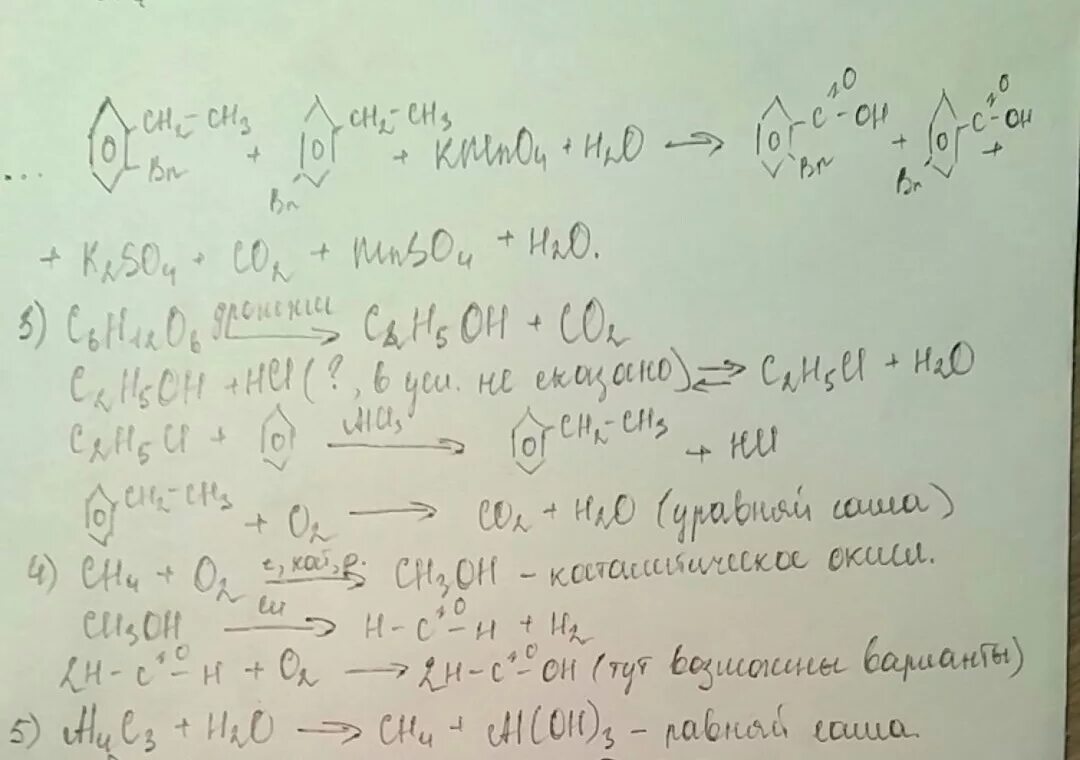 ... CH₂-CH₃ Br + CH₂-CH₃ Br + KMnO₄ + H₂O → C=O-OH Br + C=O-OH Br +
+ K₂SO₄ + CO₂ + MnSO₄ + H₂O.
3) C₆H₁₂O₆ дрожжи → C₂H₅OH + CO₂
C₂H₅OH + HCl (?, в усл. не сказано) ⇌ C₂H₅Cl + H₂O
C₂H₅Cl + AlCl₃ → CH₂-CH₃ + HCl
CH₂-CH₃ + O₂ → CO₂ + H₂O (уравняй сама)
4) CH₄ + O₂ t, кат, p. → CH₃OH - каталитическое окисл.
CH₃OH Cu → H-C=O-H + H₂
2H-C=O-H + O₂ → 2H-C=O-OH (тут возможны варианты)
5) Al₄C₃ + H₂O → CH₄ + Al(OH)₃ - равняй сама.